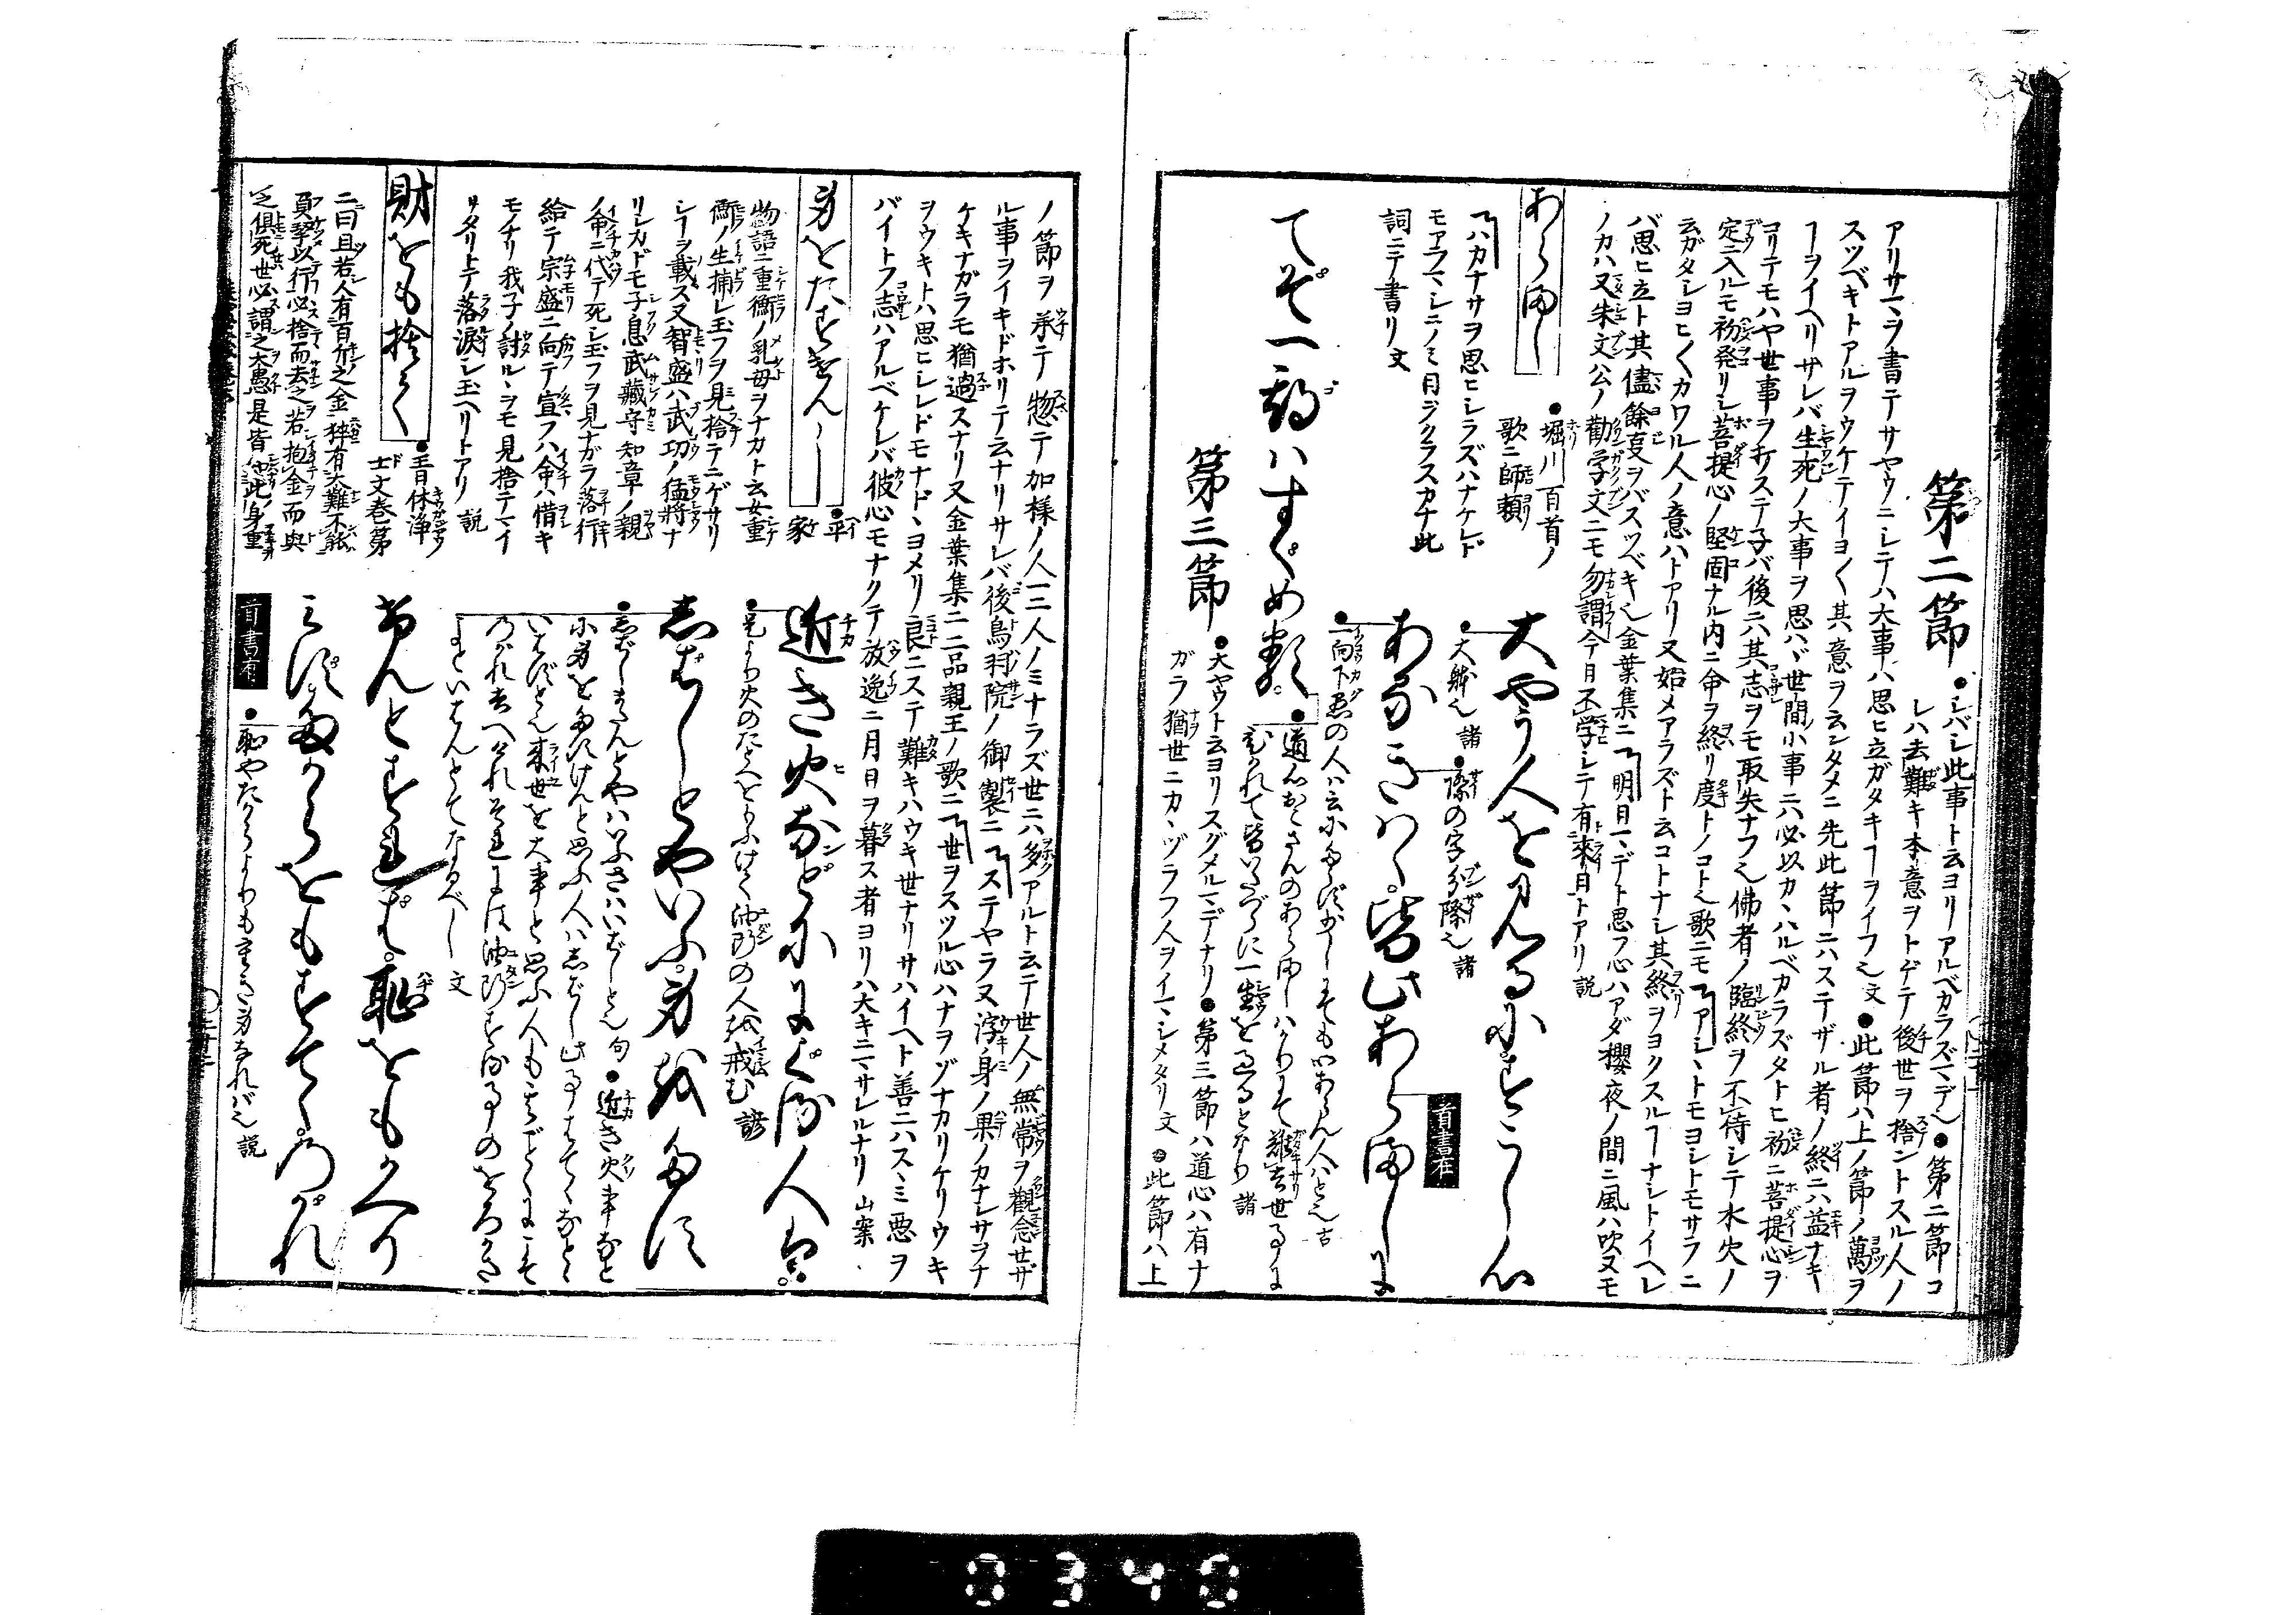 第二節
●シバシ此事ト云ヨリアルベカラズマデ也●第二節コ
レハ去難キ本意ヲトゲテ後世ヲ捨ントスル人ノ
アリサマヲ書テサヤウニシテハ大事ハ思ヒ立ガタキヿヲイフ也文●此節ハ上ノ節ノ萬ヲ
スツベキトアルヲウケテイヨ〱其意ヲ云ンタメニ先此節ニハステザル者ノ終ニハ益ナキ
ヿヲイヘリサレバ生死ノ大事ヲ思ハヾ世間ノ小事ニハ必以カヽハルベカラズタトヒ初ニ菩提心ヲ
ヨリテモハヤ世事ヲ打ステ子バ後ニハ其志ヲモ取失ナフ也佛者ノ臨終ヲ不待シテ水火ノ
定ニ入ルモ初発リシ菩提心ノ堅固ナル内ニ命ヲ終リ度トノコト也歌ニモアシヽトモヨシトモサラニ
云ガタシヨヒ〱カワル人ノ意ハトアリ又始メアラズト云コトナシ其終ヲヨクスルヿナシトイヘレ
バ思ヒ立ト其儘餘㕝ヲバスツベキ也金葉集ニ明日マデト思フ心ハアダ櫻夜ノ間ニ風ハ吹ヌモ
ノカハ又朱文公ノ勸学文ニモ勿謂今日不学シテ有來日トアリ説
あらまし
●堀川百首ノ
歌ニ師頼
ハカナサヲ思ヒシラズハナケレド
モアラマシニノミ月ヲクラスカナ此
詞ニテ書リ文
大やう人を見るにすこし心
●大躰也諸●際の字分際也諸
あるきはゝ皆此あらましに
首書在
●一向下愚の人は云にたらずかしこそても心あらん人はと也古
てぞ一期はすぐめる
●道心おこさんのあらましばかりにて難去世事に
ひかれて皆いたづらに一生を過るとなり諸
第三節
●大ヤウト云ヨリスグメルマデナリ●第三節ハ道心ハ有ナ
ガラ猶世ニカヽヅラフ人ヲイマシメタリ文●此節ハ上
ノ節ヲ承テ惣テ加様ノ人一二人ノミナラズ世ニハ多アルト云テ世人ノ無常ヲ觀念せザ
ル事ヲイキドホリテ云ナリサレバ後鳥羽院ノ御製ニステヤラヌ浮身ノ果ノカナシサヲナ
ケキナガラモ猶過スナリ又金葉集ニ二品親王ノ歌ニ世ヲスツル心ハナヲゾナカリケリウキ
ヲウキトハ思ヒシレドモナドヽヨメリ良ニステ難キハウキ世ナリサハイヘト善ニハスヽミ悪ヲ
バイトフ志ハアルベケレバ彼心モナクテ放逸ニ月日ヲ暮ス者ヨリハ大キニマサレルナリ山案
身をたすけん〱
●平
家
物語ニ重衡ノ乳母ヲナカト云女重
衡ノ生捕レ玉フヲ見捨テニゲサリ
シヿヲ載ス又智盛ハ武功ノ猛將ナ
リシカドモ子息武藏守知章ノ親
ノ命ニ代テ死シ玉フヲ見ナガラ落行
給テ宗盛ニ向テ宣フハ命ハ惜キ
モノナリ我子ノ討ルヽヲモ見捨テマイ
リタリトテ落淚シ玉ヘリトアリ説
近き火などににぐる人は。
●是より火のたとへをとふけて油断の人を戒む諸
志ばしとやいふ。身をたす
●志ばしまたんとやハいふさハいはじと也句●近き火事など
に身をたすけんと思ふ人は志ばし此事はてゝなどゝ
いはずと也来世を大事と思ふ人もそのごとくにこそ
のがれ去へけれそれには油断する事のをろかさ
をといはんとてなるべし文
けんとすれば。恥をもかへり
みず。たからをもすてゝのがれ
財をも捨て〱
●王日休浄
土文巻第
二曰且若人有百斤之金猝有大難不能
負挈以行必捨而去之若抱金而與
之倶死世必謂之大愚是皆知此身重
首書有
●恥やたからよりもおもき身なれバ也説
0340